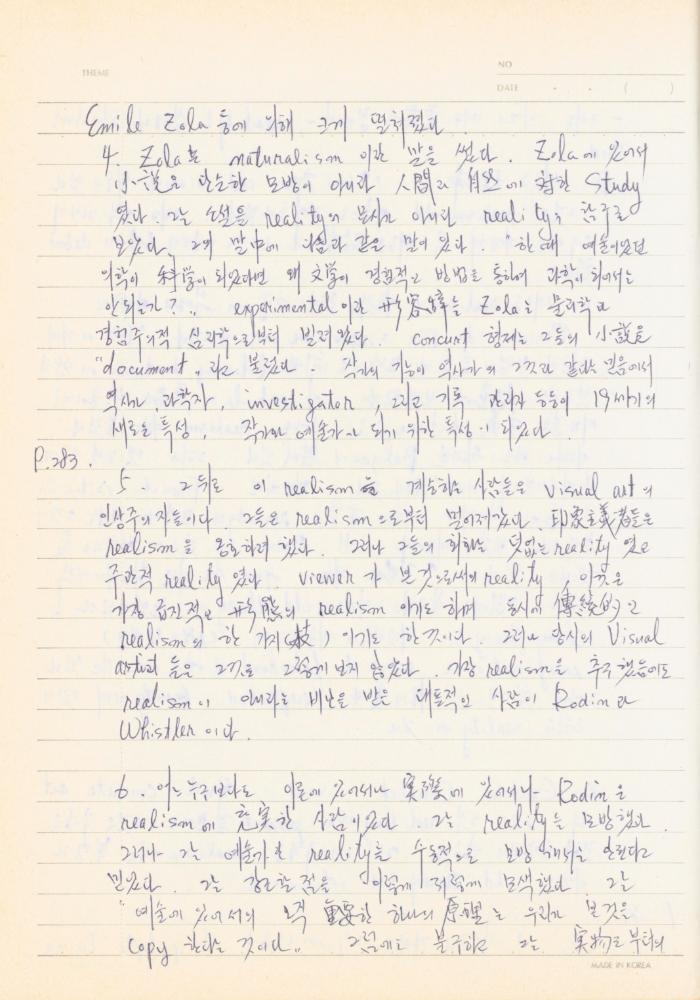 THEME
NO
DATE . . ( )
Emile Zola 등에 의해 크게 떨쳐졌다.
4. Zola는 naturalism 이란 말을 썼다. Zola에 있어서
小說은 단순한 모방이 아니라 人間과 自然에 対한 Study
였다. 그는 소설을 reality의 묘사가 아니라 reality
보았다. 그의 말中에 다음과 같은 말이 있다. "한 때 예술이었던
의학이 科学이 되었다면 왜 文学이 경험적인 방법을 통하여 과학이 되어서는
안되는가?" experimental이란 形容詞를 Zola는 물리학과
경험주의적 심리학으로부터 빌려 왔다. concurt 형제는 그들의 小説을
"document"라고 불렀다. 작가의 기능이 역사가의 그것과 같다는 믿음에서
역사가, 과학자, investigator, 그리고 기록 관리자 등등이 19세기의
새로운 특성, 작가와 예술가가 되기 위한 특성이 되었다.
P.283.
5 그 뒤로 이 realism을 계승하는 사람들은 visual art의
인상주의자들이다. 그들은 realism으로부터 멀어져 갔다. 印象主義者들은
realism을 옹호하려 했다. 그러나 그들의 회화는 덧없는 reality 였고
주관적 reality 였다. viewer가 본 것으로서의 reality, 이것은
가장 급진적인 形態의 realism 이기도 하며 동시에 傳統的인
realism의 한 가지(枝) 이기도 한 것이다. 그러나 당시의 Visual
artist 들은 그것을 그렇게 보지 않았다. 가장 realism을 추구했음에도
realism이 아니라는 비난을 받은 대표적인 사람이 Rodin과
Whistler 이다.
6. 어느 누구보다도 이론에 있어서나 実際에 있어서나 Rodin은
realism에 充実한 사람이었다. 그는 reality를 모방했다.
그러나 그는 예술가란 reality를 수동적으로 모방해서는 안된다고
믿었다. 그는 강조할 점을 이렇게 저렇게 모색했다. 그는
"예술에 있어서의 오직 重要한 하나의 原理는 우리가 본 것을
copy 한다는 것이다." 그럼에도 불구하고 그는 実物로부터의
MADE IN KOREA